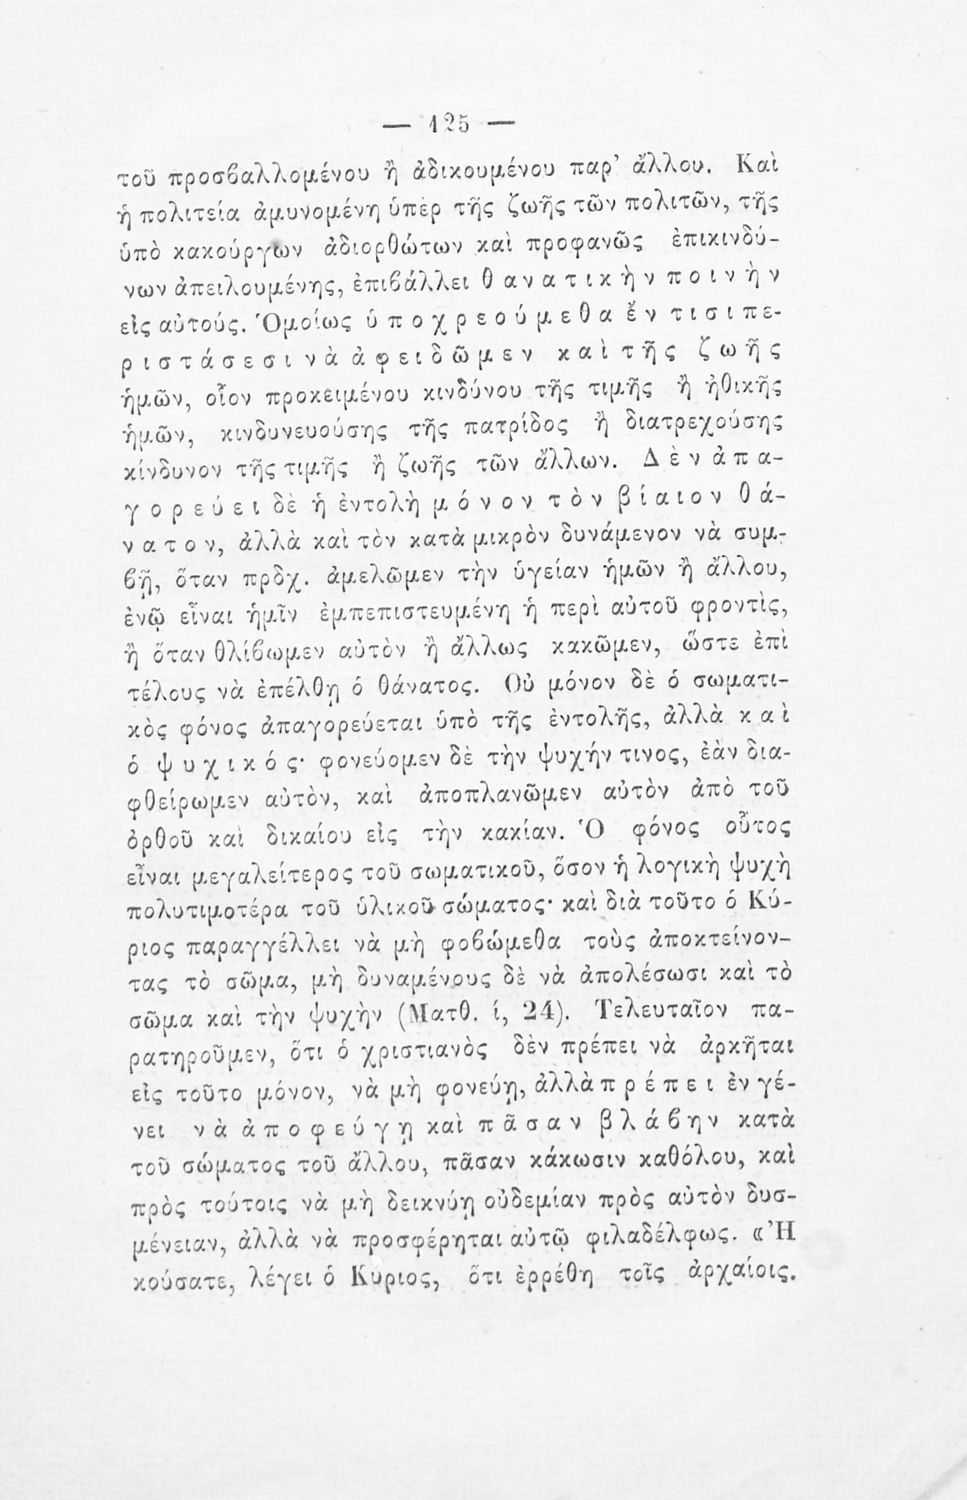 — 125 —
τοῦ προσβαλλομένου ἢ ἀδικουμένου παρ’ ἄλλου. Καὶ
ἡ πολιτεία ἀμυνομένη ὑπὲρ τῆς ζωῆς τῶν πολιτῶν, τῆς
ὑπὸ κακούργων ἀδιορθώτων καὶ προφανῶς ἐπικινδύ-
νων ἀπειλουμένης, ἐπιβάλλει θανατικὴν ποινὴν
εἰς αὐτούς. Ὁμοίως ὑποχρεούμεθα ἔν τισι πε-
ριστάσεσι νὰ ἀφειδῶμεν καὶ τῆς ζωῆς
ἡμῶν, οἷον προκειμένου κινδύνου τῆς τιμῆς ἢ ἠθικῆς
ἡμῶν, κινδυνευούσης τῆς πατρίδος ἢ διατρεχούσης
κίνδυνον τῆς τιμῆς ἢ ζωῆς τῶν ἄλλων. Δὲν ἀπα-
γορεύει δὲ ἡ ἐντολὴ μόνον τὸν βίαιον θά-
νατον, ἀλλὰ καὶ τὸν κατὰ μικρὸν δυνάμενον νὰ συμ-
βῇ, ὅταν πρδχ. ἀμελῶμεν τὴν ὑγείαν ἡμῶν ἢ ἄλλου,
ἐνῷ εἶναι ἡμῖν ἐμπεπιστευμένη ἡ περὶ αὐτοῦ φροντὶς,
ἢ ὅταν θλίβωμεν αὐτὸν ἢ ἄλλως κακῶμεν, ὥστε ἐπὶ
τέλους νὰ ἐπέλθῃ ὁ θάνατος. Οὐ μόνον δὲ ὁ σωματι-
κὸς φόνος ἀπαγορεύεται ὑπὸ τῆς ἐντολῆς, ἀλλὰ καὶ
ὁ ψυχικός· φονεύομεν δὲ τὴν ψυχήν τινος, ἐὰν δια-
φθείρωμεν αὐτὸν, καὶ ἀποπλανῶμεν αὐτὸν ἀπὸ τοῦ
ὀρθοῦ καὶ δικαίου εἰς τὴν κακίαν. Ὁ φόνος οὗτος
εἶναι μεγαλείτερος τοῦ σωματικοῦ, ὅσον ἡ λογικὴ ψυχὴ
πολυτιμοτέρα τοῦ ὑλικοῦ σώματος· καὶ διὰ τοῦτο ὁ Κύ-
ριος παραγγέλλει νὰ μὴ φοβώμεθα τοὺς ἀποκτείνον-
τας τὸ σῶμα, μὴ δυναμένους δὲ νὰ ἀπολέσωσι καὶ τὸ
σῶμα καὶ τὴν ψυχὴν (Ματθ. ί, 24). Τελευταῖον πα-
ρατηροῦμεν, ὅτι ὁ χριστιανὸς δὲν πρέπει νὰ ἀρκῆται
εἰς τοῦτο μόνον, νὰ μὴ φονεύῃ, ἀλλὰ πρέπει ἐν γέ-
νει νὰ ἀποφεύγῃ καὶ πᾶσαν βλάβην κατὰ
τοῦ σώματος τοῦ ἄλλου, πᾶσαν κάκωσιν καθόλου, καὶ
πρὸς τούτοις νὰ μὴ δεικνύῃ οὐδεμίαν πρὸς αὐτὸν δυσ-
μένειαν, ἀλλὰ νὰ προσφέρηται αὐτῷ φιλαδέλφως. «Ἠ
κούσατε, λέγει ὁ Κυριος, ὅτι ἐρρέθη τοῖς ἀρχαίοις.